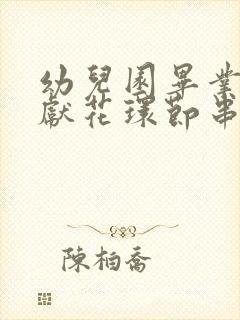 幼兒園畢業
獻花環節串
陳柏喬